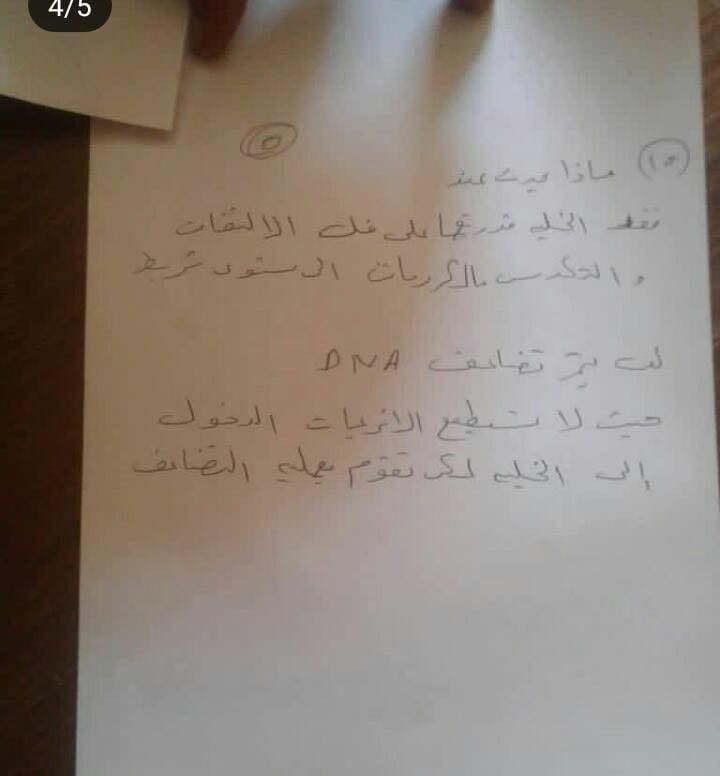 4/5
٥
١٥ ماذا يحدث عند
فقد الخليه قدرتها على فك الالتفاف
و التكدس بالكروماتين الى مستوى شريط
لن يتم تضاعف DNA
حيث لا تستطيع الانزيمات الدخول
إلى الخليه لكى تقوم بعمليه التضاعف